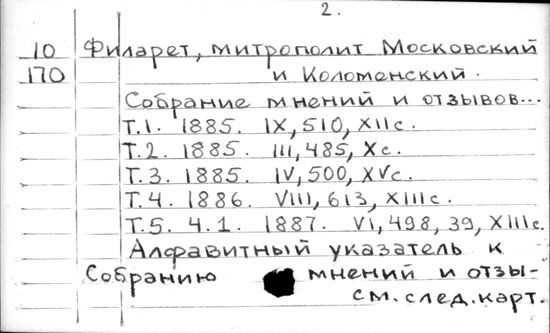 2.
10 Филарет, митрополит Московский
170 и Коломенский.
Собрание мнений и отзывов...
Т.1. 1885. IX, 510, XII с.
Т.2. 1885. III, 485, X с.
Т.3. 1885. IV, 500, XV с.
Т.4. 1886. VIII, 613, XIII с.
Т.5. Ч.1. 1887. VI, 498, 39, XIII с.
Алфавитный указатель к
Собранию мнений и отзы-
см. след. карт.